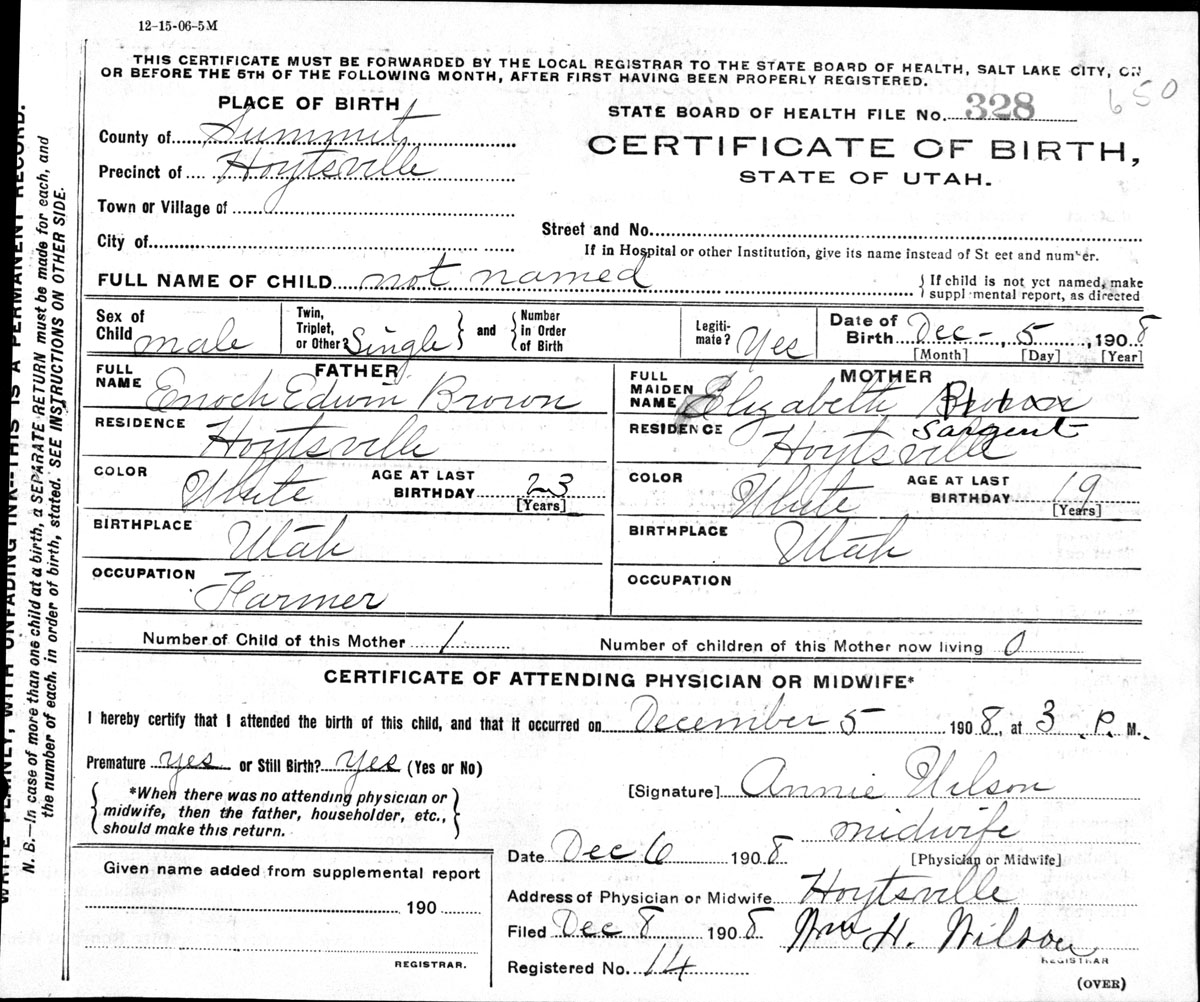 12-15-06-5M
THIS CERTIFICATE MUST BE FORWARDED BY THE LOCAL REGISTRAR TO THE STATE BOARD OF HEALTH, SALT LAKE CITY, ON
OR BEFORE THE 5TH OF THE FOLLOWING MONTH, AFTER FIRST HAVING BEEN PROPERLY REGISTERED.
650
PLACE OF BIRTH
STATE BOARD OF HEALTH FILE No. 328
County of Summit
CERTIFICATE OF BIRTH,
Precinct of Hoytsville
STATE OF UTAH.
Town or Village of
Street and No.
City of
If in Hospital or other Institution, give its name instead of St eet and number.
FULL NAME OF CHILD not named
{ If child is not yet named, make
suppl mental report, as directed
Sex of Child male
Twin, Triplet, or Other? Single } and { Number in Order of Birth
Legiti-mate? Yes
Date of Birth Dec - , 5 , 1908
[Month] [Day] [Year]
FATHER
FULL NAME Enoch Edwin Brown
RESIDENCE Hoytsville
COLOR White AGE AT LAST BIRTHDAY 23
[Years]
BIRTHPLACE Utah
OCCUPATION Farmer
MOTHER
FULL MAIDEN NAME Elizabeth Brown
Sargent
RESIDENCE Hoytsville
COLOR White AGE AT LAST BIRTHDAY 19
[Years]
BIRTHPLACE Utah
OCCUPATION
Number of Child of this Mother 1 Number of children of this Mother now living 0
CERTIFICATE OF ATTENDING PHYSICIAN OR MIDWIFE*
I hereby certify that I attended the birth of this child, and that it occurred on December 5 1908, at 3 P. M.
Premature yes or Still Birth? yes (Yes or No)
*When there was no attending physician or
midwife, then the father, householder, etc.,
should make this return.
[Signature] Annie Wilson
midwife
[Physician or Midwife]
Date Dec 6 1908
Given name added from supplemental report
190
REGISTRAR.
Address of Physician or Midwife Hoytsville
Filed Dec 8 1908 Wm H. Wilson
REGISTRAR
Registered No. 14
(OVER)
WRITE PLAINLY, WITH UNFADING INK--THIS IS A PERMANENT RECORD.
N. B.—In case of more than one child at a birth, a SEPARATE RETURN must be made for each, and
the number of each, in order of birth, stated. SEE INSTRUCTIONS ON OTHER SIDE.